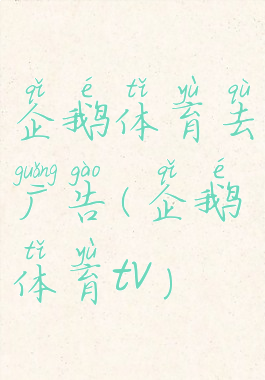 qǐ é tǐ yù qù
企鹅体育去
guǎng gào qǐ é
广告(企鹅
tǐ yù
体育tv)